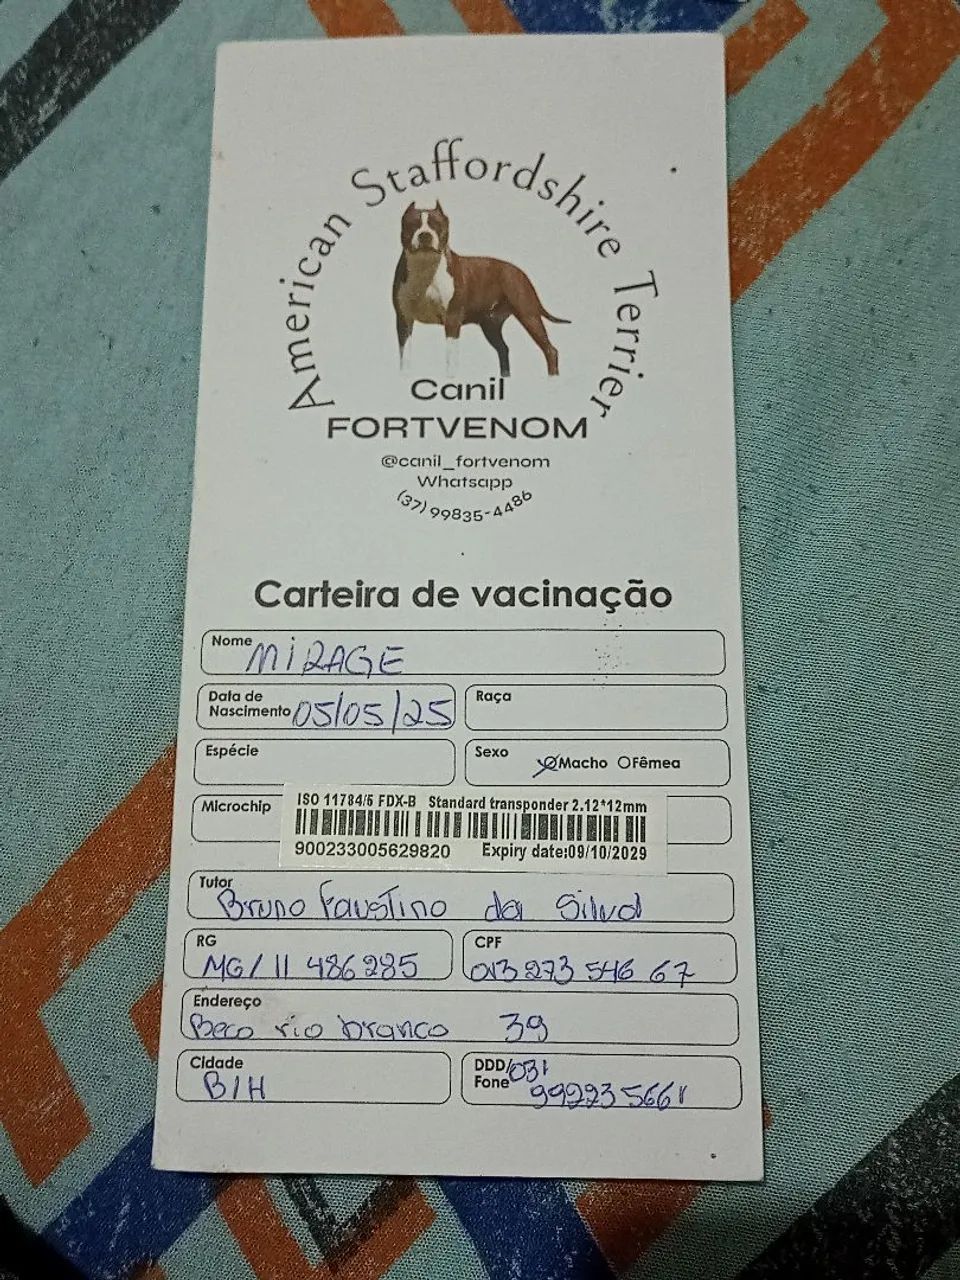 American Staffordshire Terrier
Canil
FORTVENOM
@canil_fortvenom
Whatsapp
(37) 99835-4486
Carteira de vacinação
Nome MIRAGE
Data de Nascimento 05/05/25
Raça
Espécie
Sexo Macho Fêmea
Microchip
ISO 11784/5 FDX-B Standard transponder 2.12*12mm
900233005629820 Expiry date:09/10/2029
Tutor
Bruno Faustino da Silva
RG
MG/11 486285
CPF
013 273 546 67
Endereço
Beco rio branco 39
Cidade
B/H
DDD/Fone 031
992235661